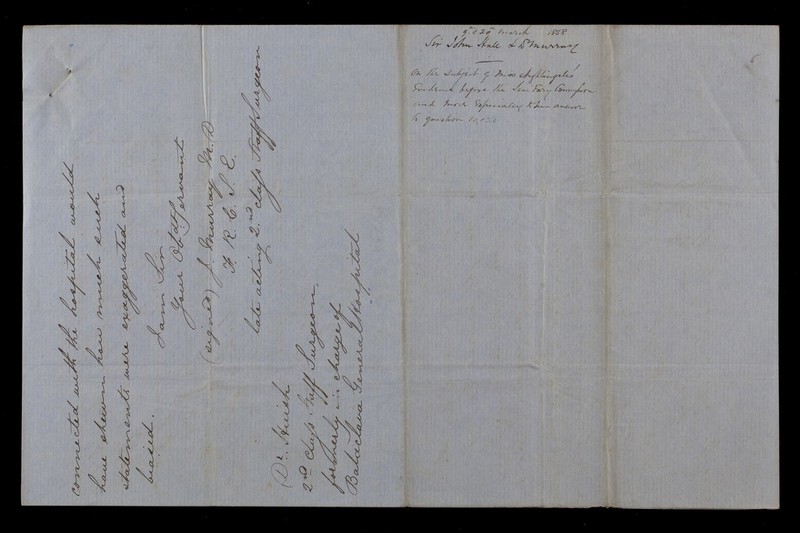 connected with the hospital would
have shewn how much such
statements were exaggerated and
biased.
I am Sir
Your Obdt Servant
(signed) J. Murray M.D
F. R. C. S. E.
late acting 2nd Class Staff Surgeon
(Dr. Huish
2nd Class Staff Surgeon,
formerly in charge of
Balaclava General Hospital
March 1858
Sir John Hall & Dr Murray
On the subject of Miss Nightingale's
Evidence before the Sanitary Commission
and more especially her answer
to question